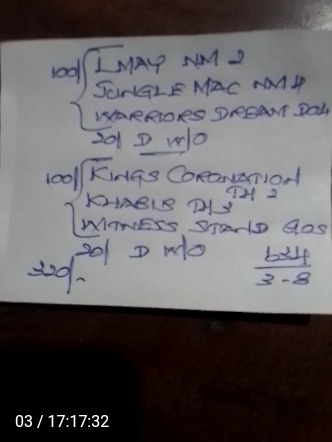 100/ I MAY NM 2
JUNGLE MAC NM 4
WARRIORS DREAM DO4
20/ D W/O
100/ KINGS CORONATION
TH 2
KHABIB TH 3
WITNESS STAND GOS
20/ D W/O
320/-
3-8
03 / 17:17:32